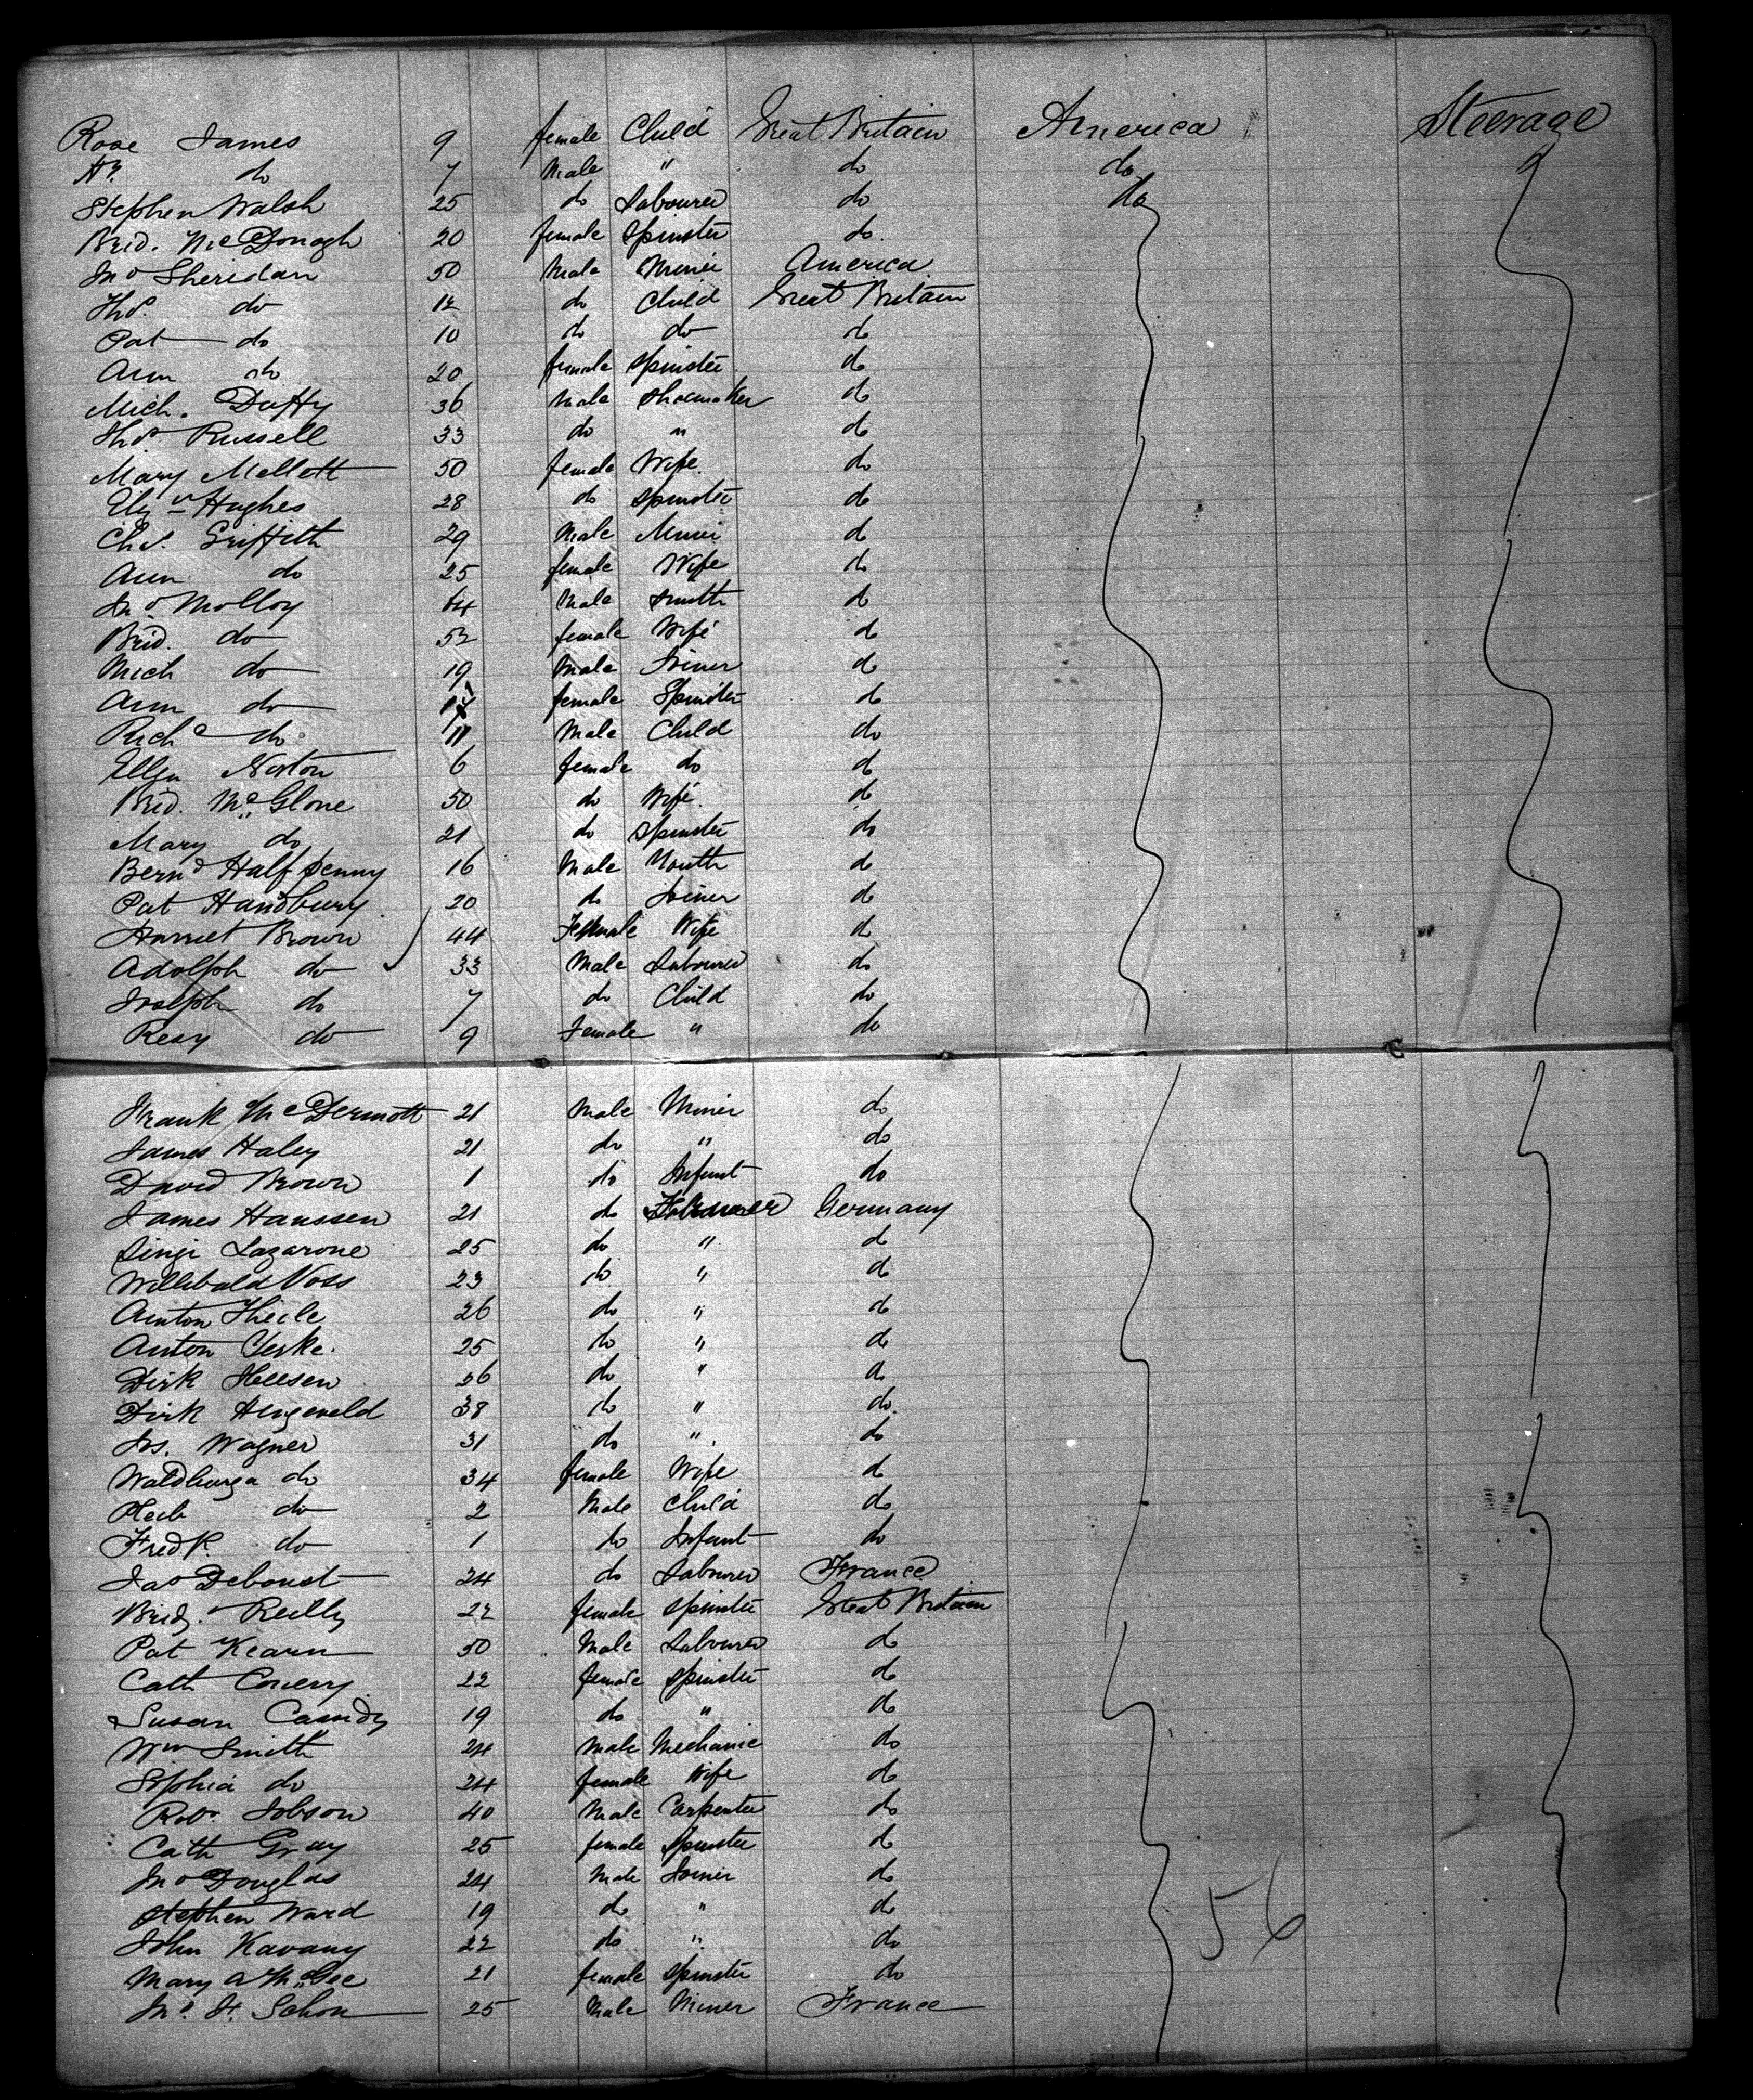 Rose James 9 female Child Great Britain America Steerage
do 7 Male " do do
Stephen Walsh 25 do Labourer do do
Brid. McDonagh 20 female Spinster do.
Jno Sheridan 50 Male Miner America
Thos. do 12 do Child Great Britain
Pat do 10 do do do
Ann do 20 female Spinster do
Mich. Duffy 36 Male Shoemaker do
Thos Russell 33 do " do
Mary Mellott 50 female Wife do
Elizth Hughes 28 do Spinster do
Chs. Griffith 29 Male Miner do
Ann do 25 female Wife do
Jno Molloy 64 Male Smith do
Brid. do 52 female Wife do
Mich do 19 Male Joiner do
Ann do female Spinster do
Richd do 11 Male Child do
Ellen Norton 6 female do do
Brid. McGlone 50 do Wife. do
Mary do 21 do Spinster do
Bernd Halfpenny 16 Male Youth do
Pat Handbury 20 do Joiner do
Harriet Brown 44 Female Wife do
Adolph do 33 Male Labourer do
Joseph do 7 do Child do
Resy do 9 Female " do
Frank McDermott 21 Male Miner do
James Haley 21 do " do
David Brown 1 do Infant do
James Hanssen 21 do Germany
Lazarone 25 do " do
Willibald Voss 23 do " do
Anton Thiele 26 do " do
Anton Yeske. 25 do " do
Dirk Heesen 26 do " do
Dirk Hengeveld 38 do " do.
Jos. Wagner 31 do " do
Waldburga do 34 female Wife do
do 2 Male Child do
Fredk. do 1 do Infant do
Jas Deboust 24 do Labourer France
Bridg. Reilly 22 female Spinster Great Britain
Pat Kearn 50 Male Labourer do
Cath Conerry 22 female Spinster do
Susan Cassidy 19 do " do
Wm Smith 24 Male Mechanic do
Sophia do 24 female Wife do
Robt. Jobson 40 Male Carpenter do
Cath Gray 25 female Spinster do
Jno Douglas 24 Male Joiner do
Stephen Ward 19 do " do
John Kavany 22 do " do
Mary A McGee 21 female Spinster do
Jno. H. Schon 25 Male Miner France
56